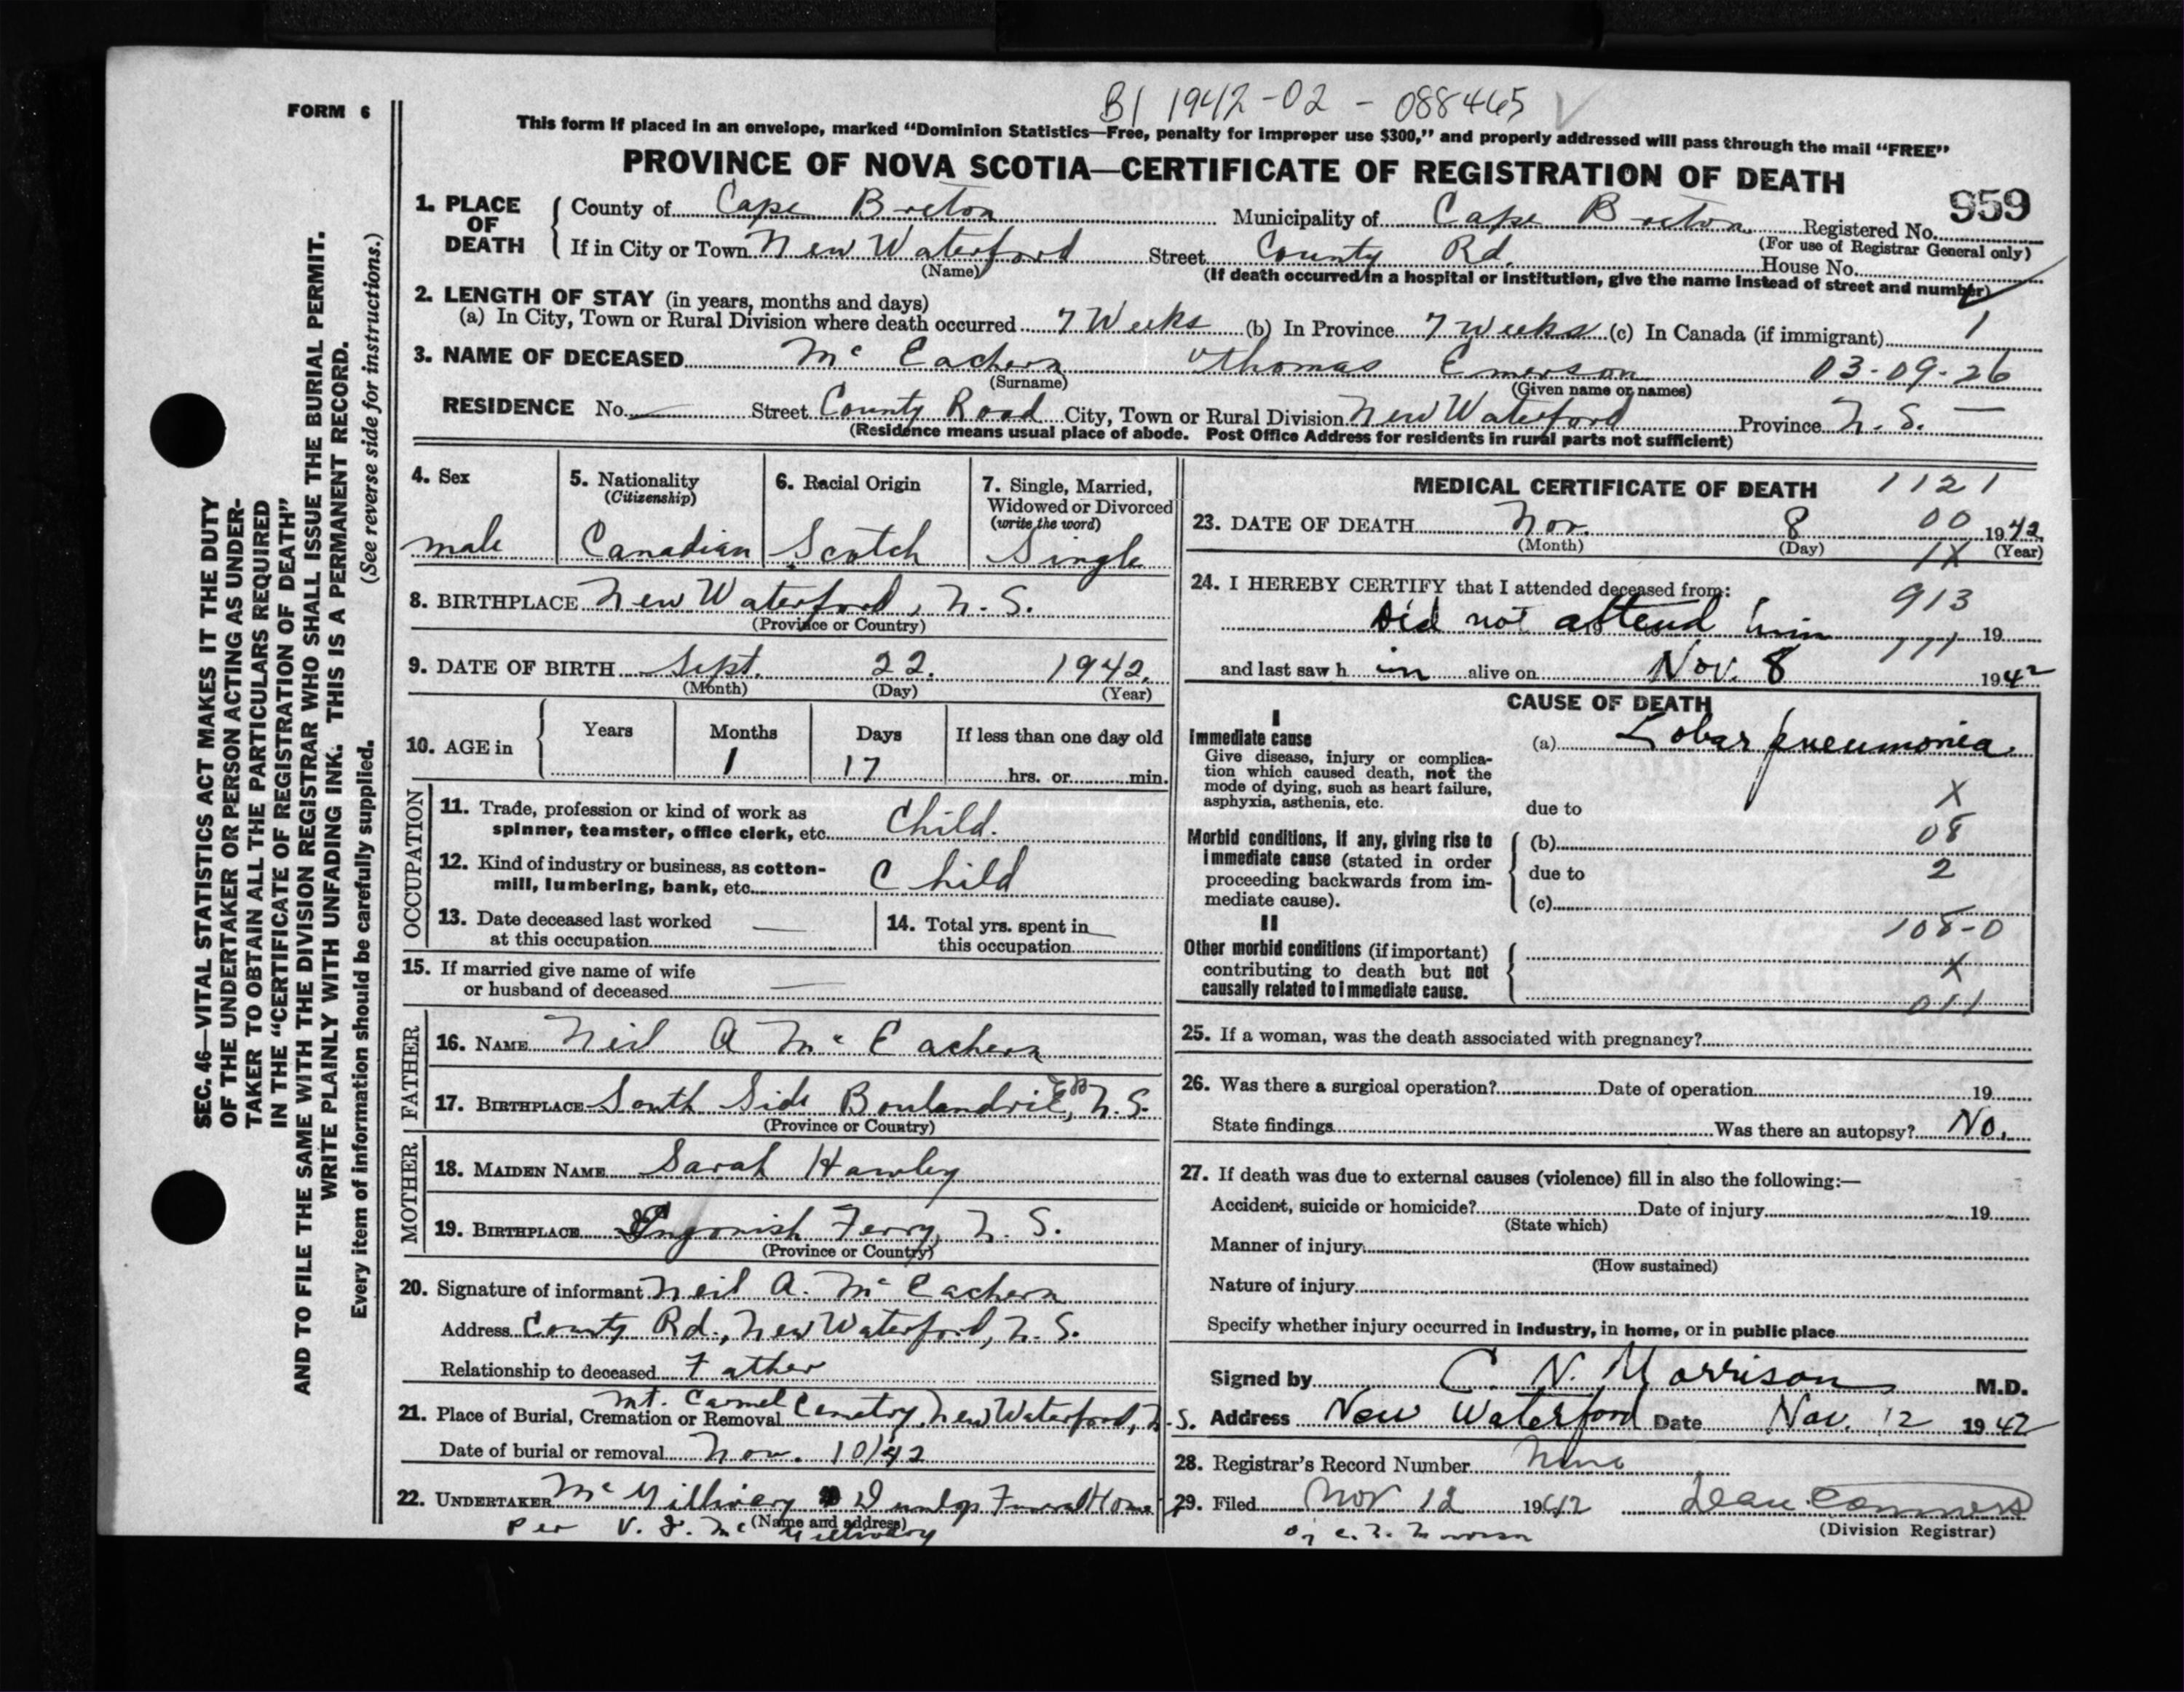 B1 1942-02-088465
FORM 6
This form if placed in an envelope, marked "Dominion Statistics—Free, penalty for improper use $300," and properly addressed will pass through the mail "FREE"
PROVINCE OF NOVA SCOTIA—CERTIFICATE OF REGISTRATION OF DEATH
959
1. PLACE OF DEATH County of Cape Breton Municipality of Cape Breton Registered No.
(For use of Registrar General only)
If in City or Town New Waterford Street County Rd. House No.
(Name) (If death occurred in a hospital or institution, give the name instead of street and number)
2. LENGTH OF STAY (in years, months and days)
(a) In City, Town or Rural Division where death occurred 7 Weeks (b) In Province 7 Weeks (c) In Canada (if immigrant) 1
3. NAME OF DECEASED Mc Eachern Thomas Emerson 03-09-26
(Surname) (Given name or names)
RESIDENCE No. — Street County Road City, Town or Rural Division New Waterford Province N. S. —
(Residence means usual place of abode. Post Office Address for residents in rural parts not sufficient)
4. Sex
male
5. Nationality
(Citizenship)
Canadian
6. Racial Origin
Scotch
7. Single, Married,
Widowed or Divorced
(write the word)
Single
8. BIRTHPLACE New Waterford, N. S.
(Province or Country)
9. DATE OF BIRTH Sept. 22. 1942.
(Month) (Day) (Year)
10. AGE in Years Months Days If less than one day old
1 17 hrs. or min.
OCCUPATION
11. Trade, profession or kind of work as
spinner, teamster, office clerk, etc. Child.
12. Kind of industry or business, as cotton-
mill, lumbering, bank, etc. Child
13. Date deceased last worked
at this occupation —
14. Total yrs. spent in
this occupation —
15. If married give name of wife
or husband of deceased —
FATHER
16. NAME Neil A Mc Eachern
17. BIRTHPLACE South Side N. S.
(Province or Country)
MOTHER
18. MAIDEN NAME Sarah Hawley
19. BIRTHPLACE Ingonish Ferry, N. S.
(Province or Country)
20. Signature of informant Neil A. Mc Eachern
Address County Rd., New Waterford, N. S.
Relationship to deceased Father
21. Place of Burial, Cremation or Removal Mt. Carmel Cemetry, New Waterford, N. S.
Date of burial or removal Nov. 10/42
22. UNDERTAKER Mc Gillivary & Dunlap Funeral Home
(Name and address)
Per V. J. Mc Gillivary
MEDICAL CERTIFICATE OF DEATH 1121
23. DATE OF DEATH Nov. 8 00 1942
(Month) (Day) 1X (Year)
24. I HEREBY CERTIFY that I attended deceased from: 913
Did not attend him 19
771
and last saw h im alive on Nov. 8 1942
CAUSE OF DEATH
I
Immediate cause
Give disease, injury or complica-
tion which caused death, not the
mode of dying, such as heart failure,
asphyxia, asthenia, etc.
(a) Lobar pneumonia.
X
due to
08
Morbid conditions, if any, giving rise to
immediate cause (stated in order
proceeding backwards from im-
mediate cause).
(b)
due to 2
(c)
108-0
II
Other morbid conditions (if important)
contributing to death but not
causally related to immediate cause.
X
011
25. If a woman, was the death associated with pregnancy?
26. Was there a surgical operation? Date of operation 19
State findings Was there an autopsy? No.
27. If death was due to external causes (violence) fill in also the following:—
Accident, suicide or homicide? Date of injury 19
(State which)
Manner of injury
(How sustained)
Nature of injury
Specify whether injury occurred in Industry, in home, or in public place
Signed by C. N. Morrison M.D.
Address New Waterford Date Nov. 12 1942
28. Registrar's Record Number None
29. Filed Nov 12 1942
(Division Registrar)
SEC. 46—VITAL STATISTICS ACT MAKES IT THE DUTY
OF THE UNDERTAKER OR PERSON ACTING AS UNDER-
TAKER TO OBTAIN ALL THE PARTICULARS REQUIRED
IN THE "CERTIFICATE OF REGISTRATION OF DEATH"
AND TO FILE THE SAME WITH THE DIVISION REGISTRAR WHO SHALL ISSUE THE BURIAL PERMIT.
WRITE PLAINLY WITH UNFADING INK. THIS IS A PERMANENT RECORD.
Every item of information should be carefully supplied. (See reverse side for instructions.)